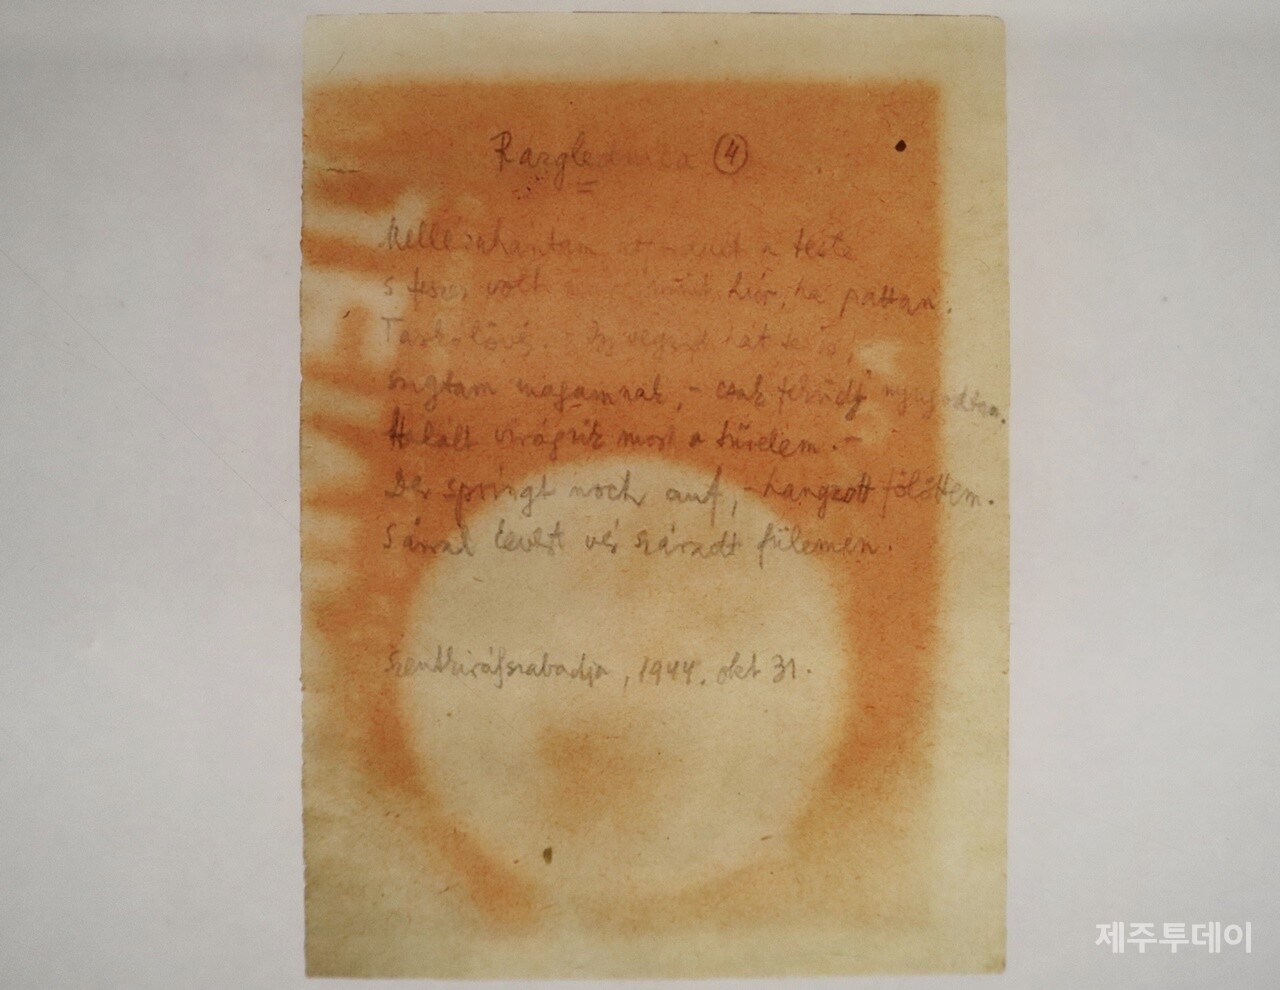 Razglednica ④
Mellézuhantam, átfordult a teste
s feszes volt már, mint húr, ha pattan.
Tarkólövés. - Így végzed hát te is, -
súgtam magamnak, - csak feküdj nyugodtan.
Halált virágzik most a türelem. -
Der springt noch auf, - hangzott fölöttem.
Sárral kevert vér száradt fülemen.
Szentkirályszabadja, 1944. okt 31.
제주투데이